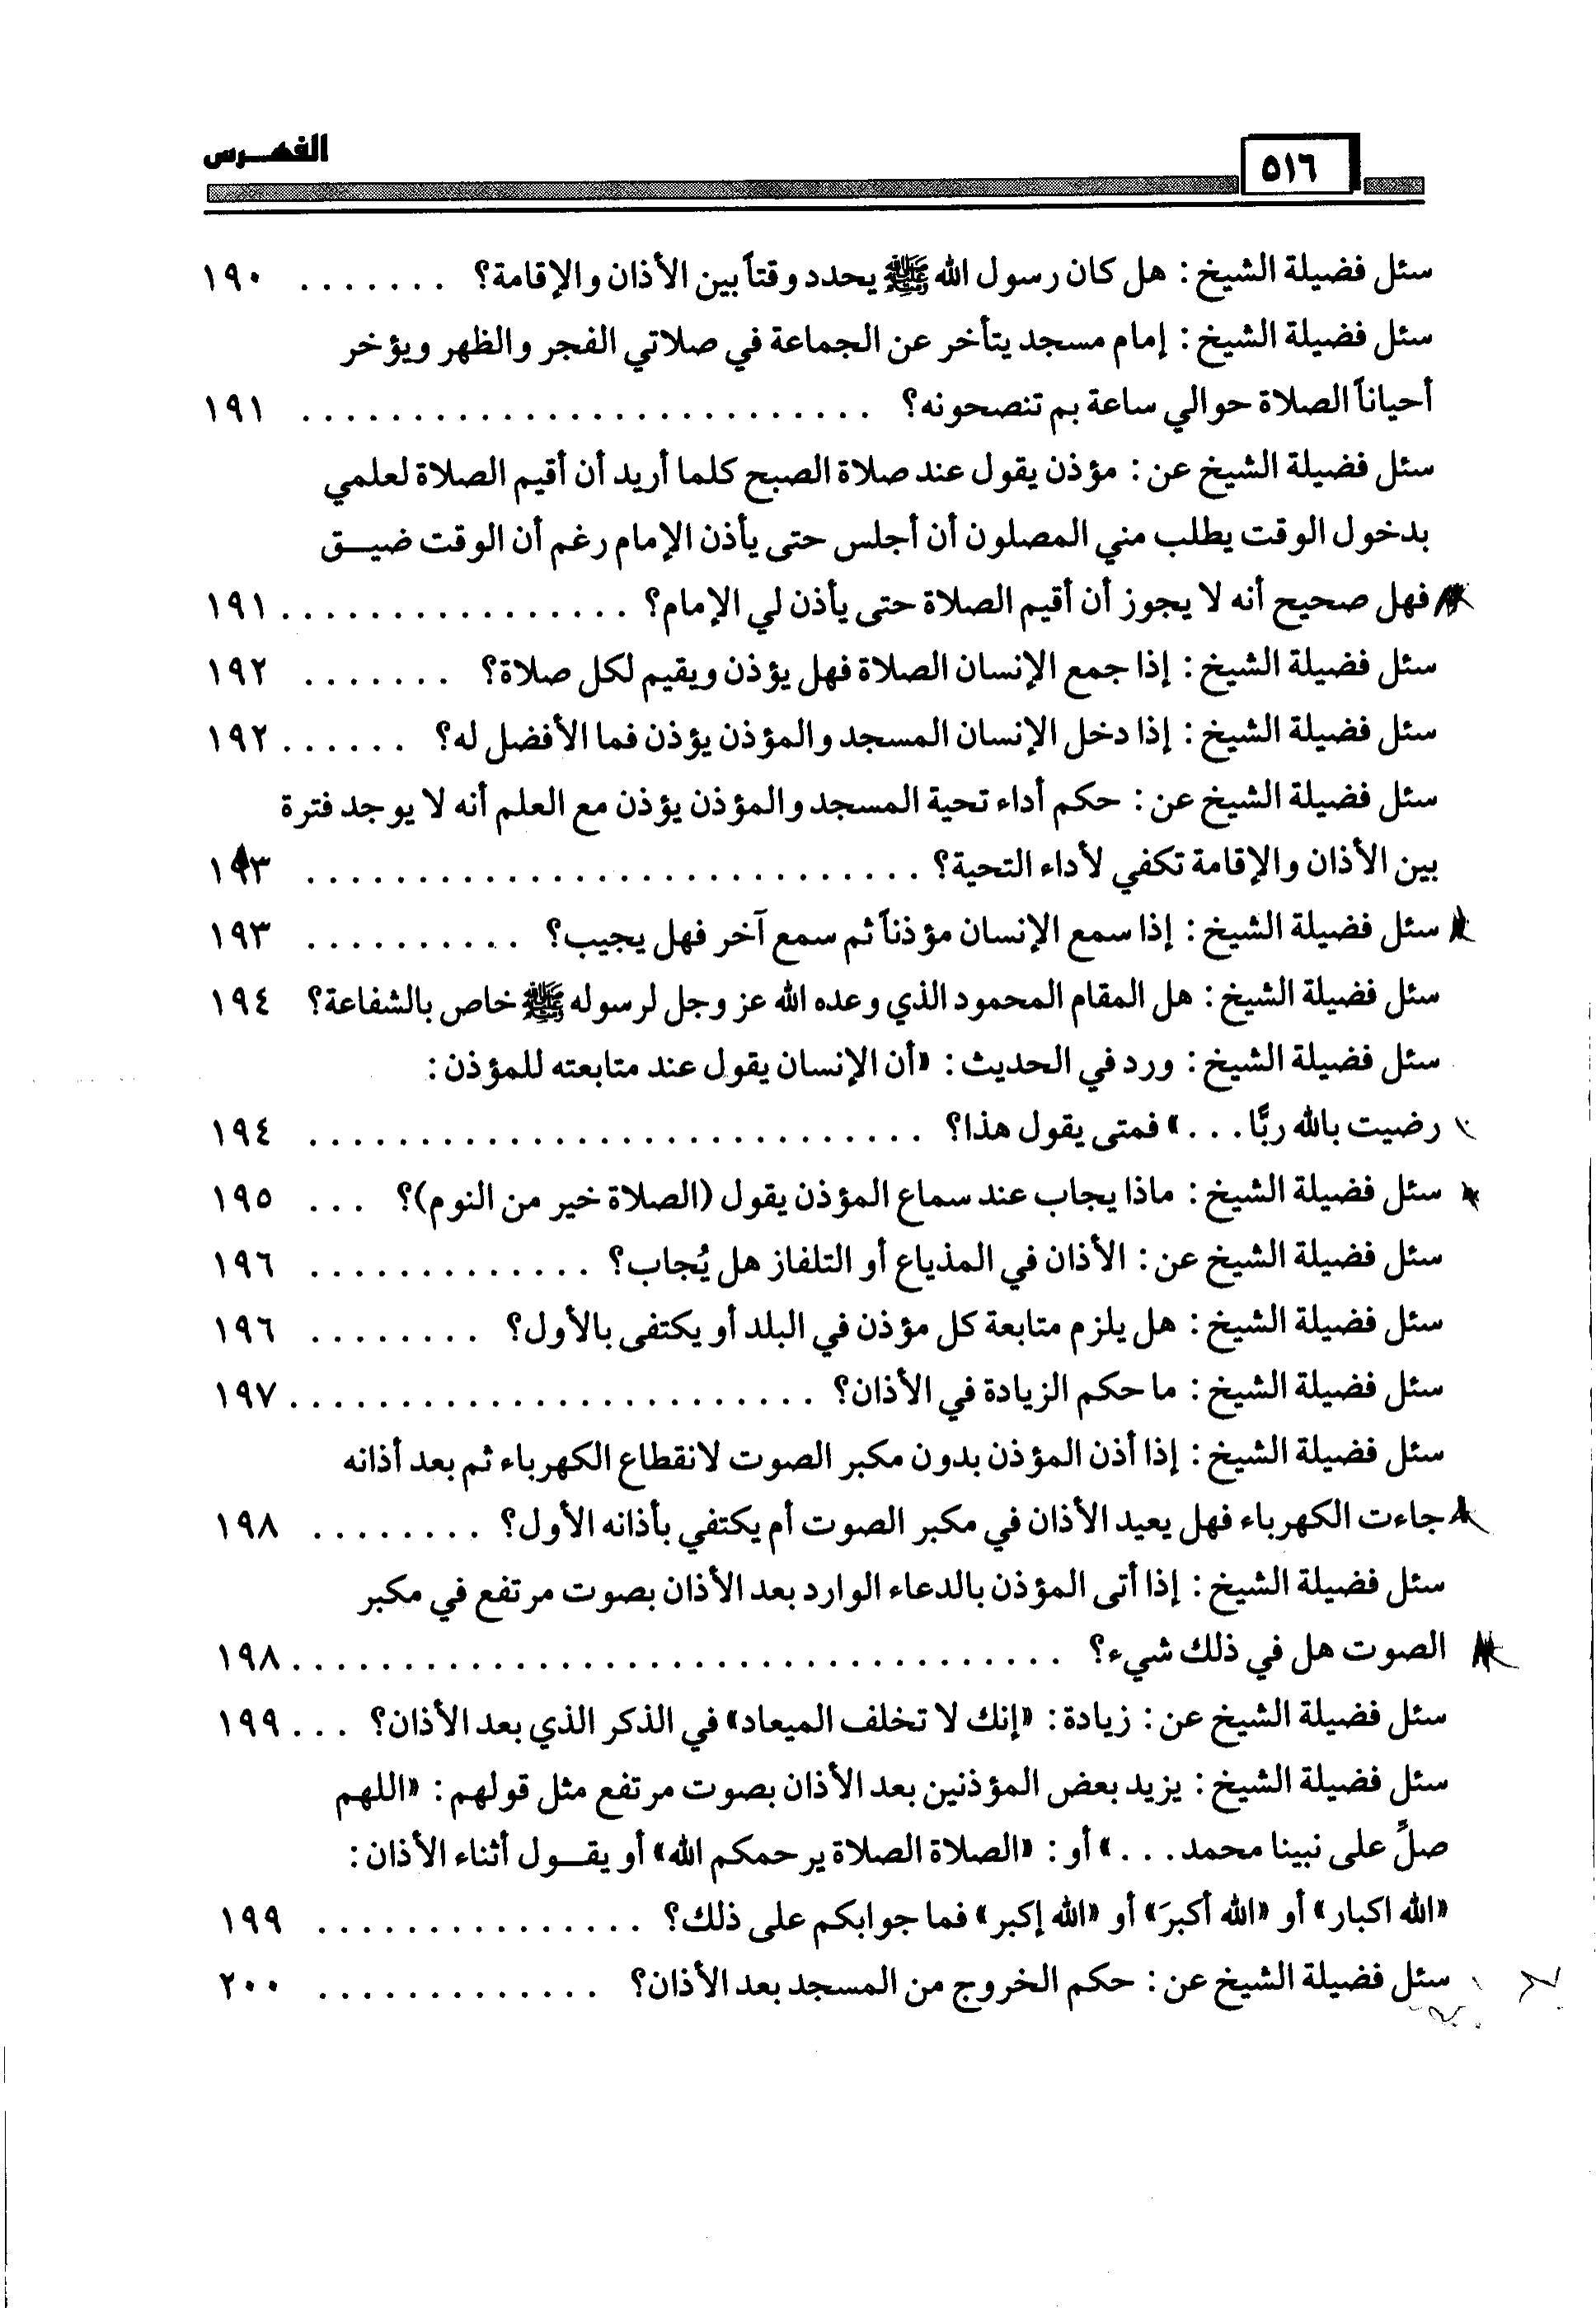 ٥١٦ الفهـــرس
سئل فضيلة الشيخ: هل كان رسول الله ﷺ يحدد وقتاً بين الأذان والإقامة؟ ....... ١٩٠
سئل فضيلة الشيخ: إمام مسجد يتأخر عن الجماعة في صلاتي الفجر والظهر ويؤخر
أحياناً الصلاة حوالي ساعة بم تنصحونه؟ .................... ١٩١
سئل فضيلة الشيخ عن: مؤذن يقول عند صلاة الصبح كلما أريد أن أقيم الصلاة لعلمي
بدخول الوقت يطلب مني المصلون أن أجلس حتى يأذن الإمام رغم أن الوقت ضيــق
فهل صحيح أنه لا يجوز أن أقيم الصلاة حتى يأذن لي الإمام؟ ............ ١٩١
سئل فضيلة الشيخ: إذا جمع الإنسان الصلاة فهل يؤذن ويقيم لكل صلاة؟ ....... ١٩٢
سئل فضيلة الشيخ: إذا دخل الإنسان المسجد والمؤذن يؤذن فما الأفضل له؟ ...... ١٩٢
سئل فضيلة الشيخ عن: حكم أداء تحية المسجد والمؤذن يؤذن مع العلم أنه لا يوجد فترة
بين الأذان والإقامة تكفي لأداء التحية؟ ..................... ١٩٣
سئل فضيلة الشيخ: إذا سمع الإنسان مؤذناً ثم سمع آخر فهل يجيب؟ ........ ١٩٣
سئل فضيلة الشيخ: هل المقام المحمود الذي وعده الله عز وجل لرسوله ﷺ خاص بالشفاعة؟ ١٩٤
سئل فضيلة الشيخ: ورد في الحديث: «أن الإنسان يقول عند متابعته للمؤذن:
رضيت بالله ربًّا...» فمتى يقول هذا؟ ..................... ١٩٤
سئل فضيلة الشيخ: ماذا يجاب عند سماع المؤذن يقول (الصلاة خير من النوم)؟ ... ١٩٥
سئل فضيلة الشيخ عن: الأذان في المذياع أو التلفاز هل يُجاب؟ .......... ١٩٦
سئل فضيلة الشيخ: هل يلزم متابعة كل مؤذن في البلد أو يكتفى بالأول؟ ...... ١٩٦
سئل فضيلة الشيخ: ما حكم الزيادة في الأذان؟ .................. ١٩٧
سئل فضيلة الشيخ: إذا أذن المؤذن بدون مكبر الصوت لانقطاع الكهرباء ثم بعد أذانه
جاءت الكهرباء فهل يعيد الأذان في مكبر الصوت أم يكتفي بأذانه الأول؟ ...... ١٩٨
سئل فضيلة الشيخ: إذا أتى المؤذن بالدعاء الوارد بعد الأذان بصوت مرتفع في مكبر
الصوت هل في ذلك شيء؟ .......................... ١٩٨
سئل فضيلة الشيخ عن: زيادة: «إنك لا تخلف الميعاد» في الذكر الذي بعد الأذان؟ ... ١٩٩
سئل فضيلة الشيخ: يزيد بعض المؤذنين بعد الأذان بصوت مرتفع مثل قولهم: «اللهم
صلِّ على نبينا محمد...» أو: «الصلاة الصلاة يرحمكم الله» أو يقــول أثناء الأذان:
«الله اكبار» أو «الله أكبرَ» أو «الله إكبر» فما جوابكم على ذلك؟ ........... ١٩٩
سئل فضيلة الشيخ عن: حكم الخروج من المسجد بعد الأذان؟ .......... ٢٠٠